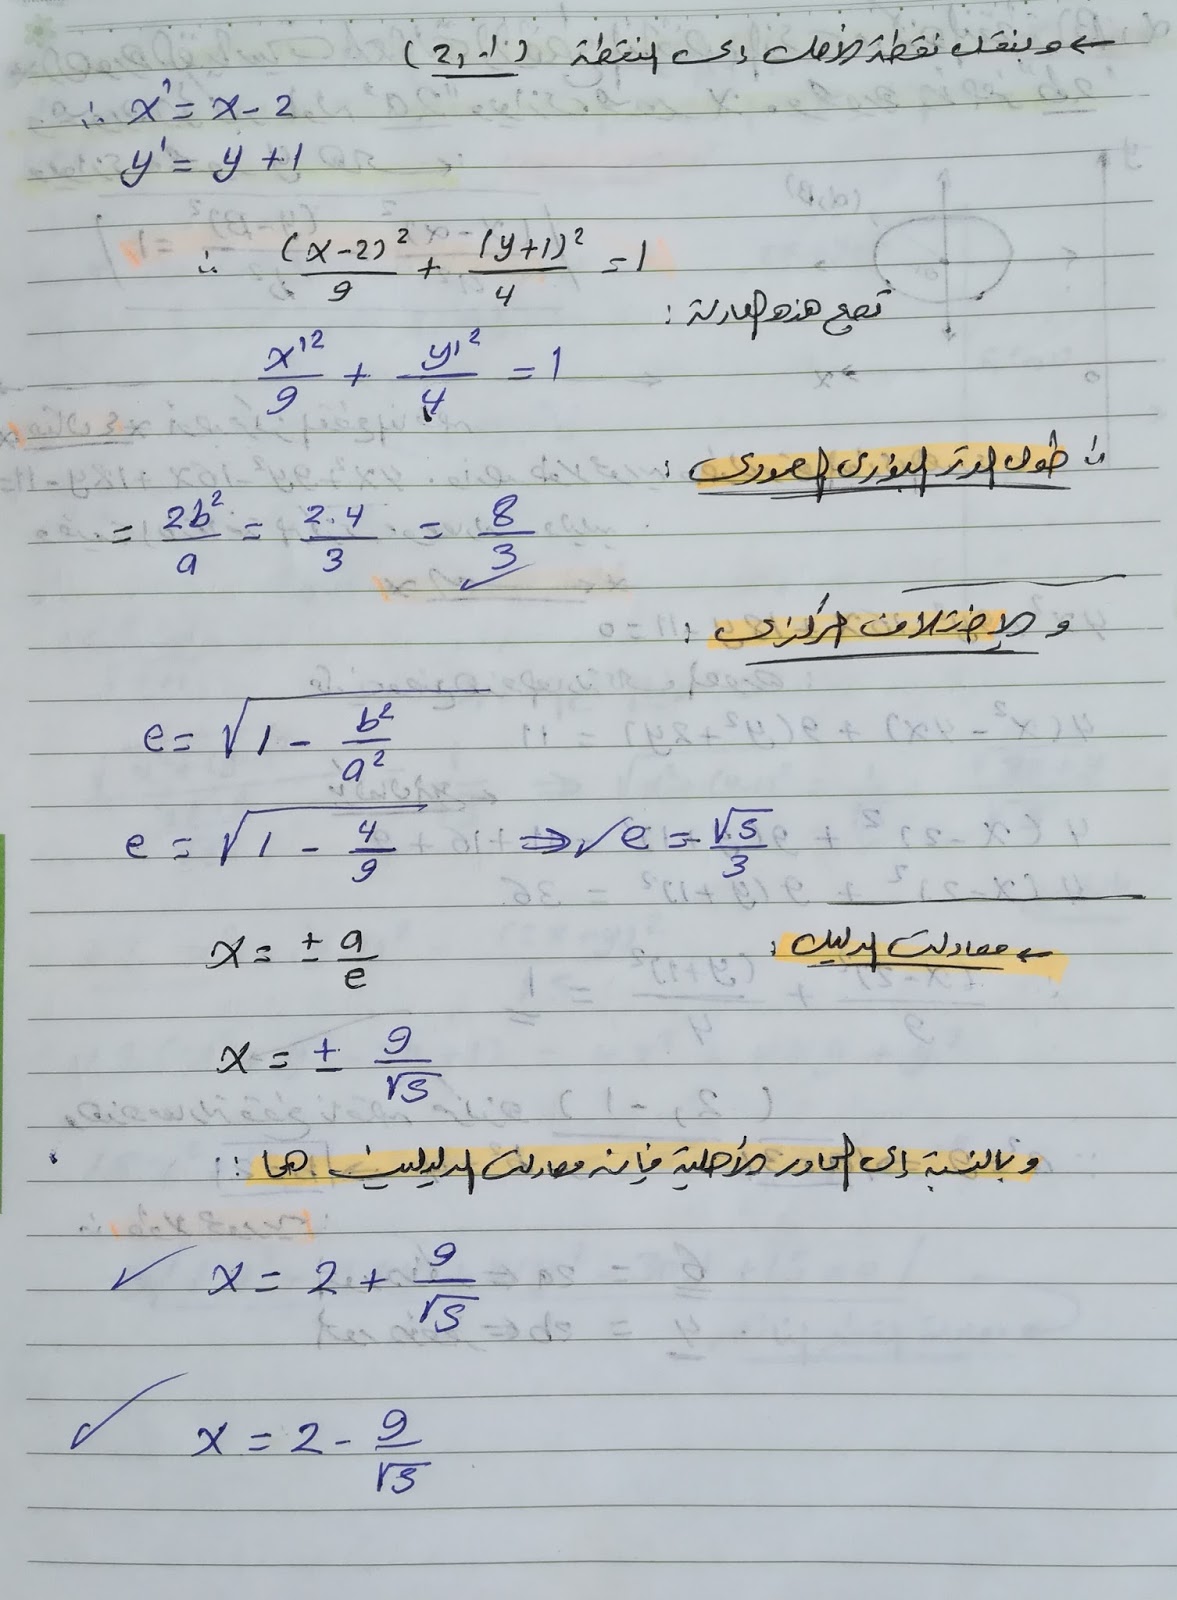 ← وبنقل نقطة الأصل إلى النقطة (2,-1)
∴ x' = x - 2
y' = y + 1
∴ (x-2)²/9 + (y+1)²/4 = 1
تصبح هذه المعادلة :
x'²/9 + y'²/4 = 1
∴ طول الوتر البؤرى العمودى :
= 2b²/a = 2.4/3 = 8/3
و الإختلاف المركزى :
e = √(1 - b²/a²)
e = √(1 - 4/9) ⇒ ✓ e = √5/3
← معادلت الدليل :
x = ± a/e
x = ± 9/√5
وبالنسبة إلى المحاور الأصلية فإنه معادلت الدليلين هما :
✓ x = 2 + 9/√5
✓ x = 2 - 9/√5